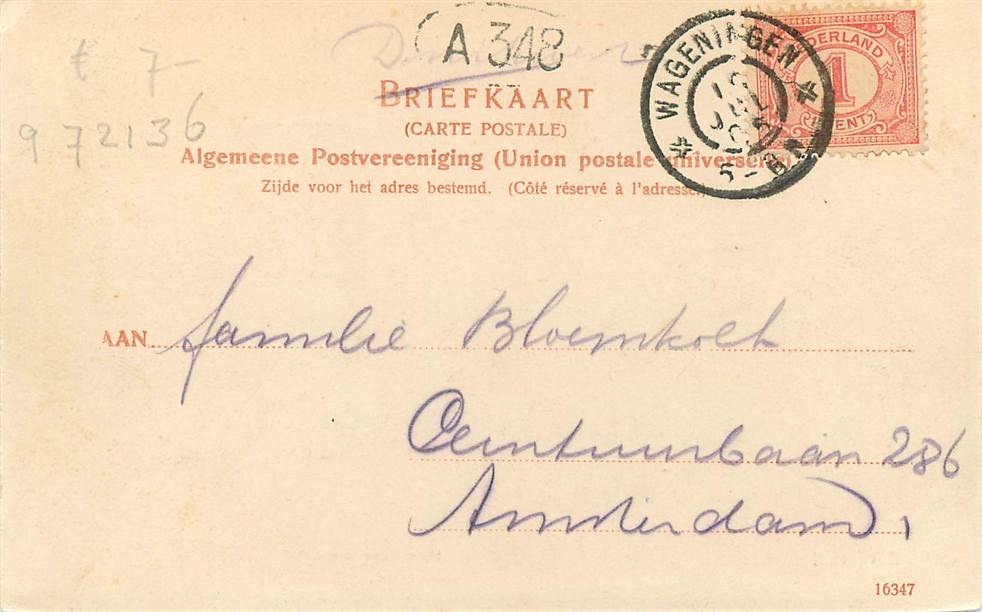 A 348
€ 7-
BRIEFKAART
(CARTE POSTALE)
972136
Algemeene Postvereeniging (Union postale universelle)
Zijde voor het adres bestemd. (Côté réservé à l'adresse.)
WAGENINGEN
NEDERLAND
1
CENT
AAN familie Bloemkolk
Ceintuurbaan 286
Amsterdam,
16347